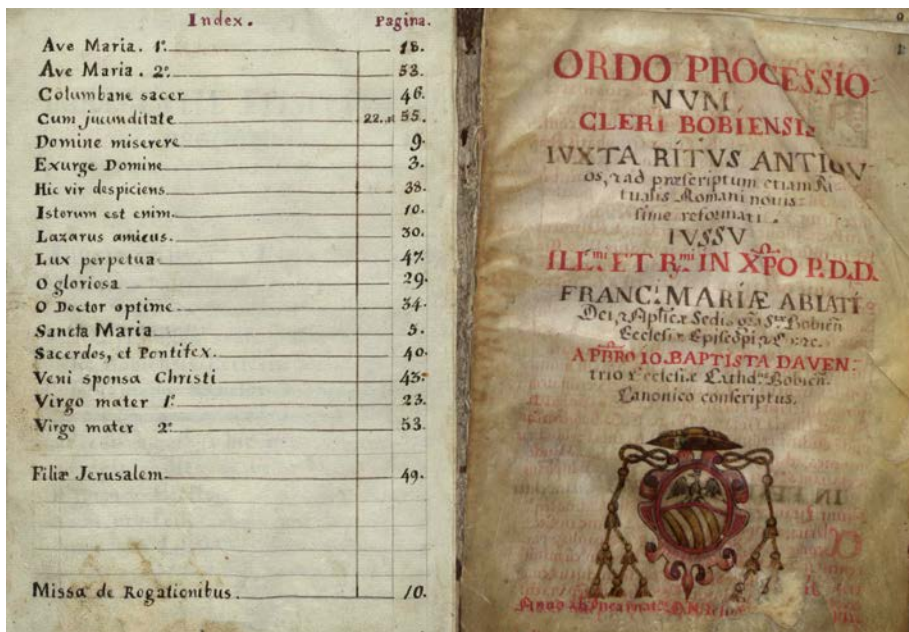 Index. Pagina.
Ave Maria. 1º. 18.
Ave Maria. 2º. 53.
Columbane sacer 46.
Cum jucunditate 22. et 55.
Domine miserere 9.
Exurge Domine 3.
Hic vir despiciens 38.
Istorum est enim. 10.
Lazarus amicus. 30.
Lux perpetua 47.
O gloriosa 29.
O Doctor optime 34.
Sancta Maria 5.
Sacerdos, et Pontifex. 40.
Veni sponsa Christi 43.
Virgo mater 1º. 23.
Virgo mater 2º. 53.
Filiæ Jerusalem 49.
Missa de Rogationibus. 10.
ORDO PROCESSIO-
NVM
CLERI BOBIENSIS
IVXTA RITVS ANTIQV-
os, & ad præscriptum etiam Ri-
tualis Romani novis-
sime reformati.
IVSSV
ILL.mi ET R.mi IN XPO P.D.D.
FRANC. MARIÆ ABIATI
Dei, & Aplicæ Sedis Bobien
Ecclesiæ Episcopi
A PBRO IO. BAPTISTA DAVEN-
trio Ecclesiæ Cathd. Bobien.
Canonico conscriptus.
Anno ab